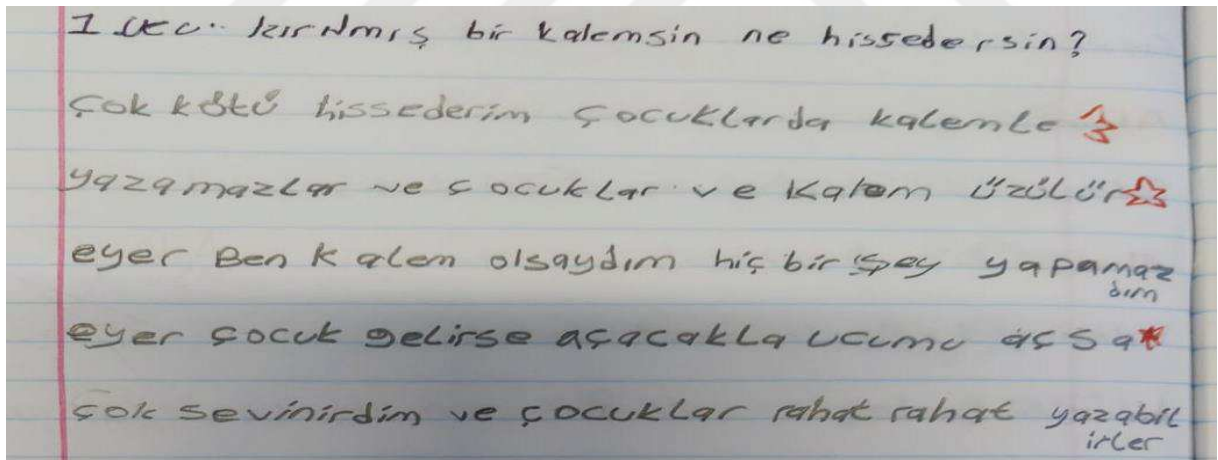 1 ucu kırılmış bir kalemsin ne hissedersin?
Çok kötü hissederim Çocuklarda kalemle
yazamazlar ve çocuklar ve kalem üzülür
eyer Ben kalem olsaydım hiç bir şey yapamaz
dım
eyer çocuk gelirse açacakla ucumu açsa
çok sevinirdim ve çocuklar rahat rahat yazabil
irler